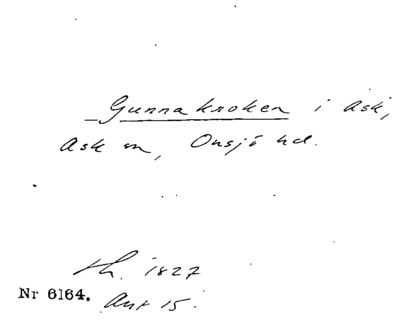 Gunnakroken i Ask,
Ask sn, Onsjö hd.
th. 1827
Nr 6164. Ant 15.